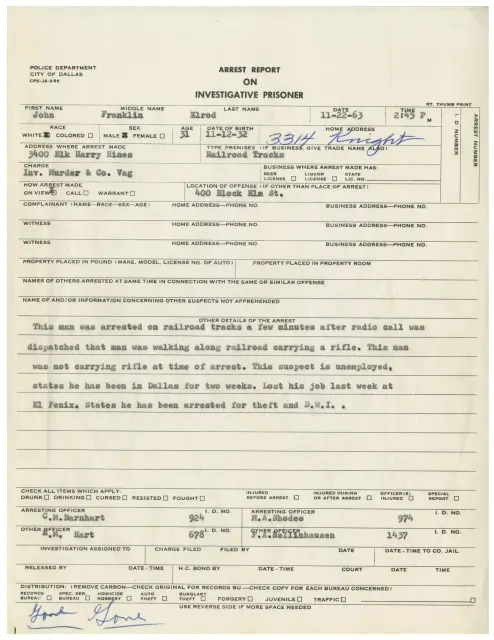 POLICE DEPARTMENT
CITY OF DALLAS
CPD-JS-596
ARREST REPORT
ON
INVESTIGATIVE PRISONER
RT. THUMB PRINT
FIRST NAME MIDDLE NAME LAST NAME DATE TIME
John Franklin Elrod 11-22-63 2:45 P M
I. D. NUMBER
ARREST NUMBER
RACE SEX AGE DATE OF BIRTH HOME ADDRESS
WHITE COLORED MALE FEMALE 31 11-12-32 3314 Knight
ADDRESS WHERE ARREST MADE TYPE PREMISES (IF BUSINESS, GIVE TRADE NAME ALSO)
3400 Elk Harry Hines Railroad Tracks
CHARGE BUSINESS WHERE ARREST MADE HAS:
Inv. Murder & Co. Vag BEER LICENSE LIQUOR LICENSE STATE LIC. NO.
HOW ARREST MADE LOCATION OF OFFENSE (IF OTHER THAN PLACE OF ARREST)
ON VIEW CALL WARRANT 400 Block Elm St.
COMPLAINANT (NAME—RACE—SEX—AGE) HOME ADDRESS—PHONE NO. BUSINESS ADDRESS—PHONE NO.
WITNESS HOME ADDRESS—PHONE NO. BUSINESS ADDRESS—PHONE NO.
WITNESS HOME ADDRESS—PHONE NO. BUSINESS ADDRESS—PHONE NO.
PROPERTY PLACED IN POUND (MAKE, MODEL, LICENSE NO. OF AUTO) PROPERTY PLACED IN PROPERTY ROOM
NAMES OF OTHERS ARRESTED AT SAME TIME IN CONNECTION WITH THE SAME OR SIMILAR OFFENSE
NAME OF AND/OR INFORMATION CONCERNING OTHER SUSPECTS NOT APPREHENDED
OTHER DETAILS OF THE ARREST
This man was arrested on railroad tracks a few minutes after radio call was
dispatched that man was walking along railroad carrying a rifle. This man
was not carrying rifle at time of arrest. This suspect is unemployed,
states he has been in Dallas for two weeks. Lost his job last week at
El Fenix. States he has been arrested for theft and D.W.I. .
CHECK ALL ITEMS WHICH APPLY:
DRUNK DRINKING CURSED RESISTED FOUGHT INJURED BEFORE ARREST INJURED DURING OR AFTER ARREST OFFICER(S) INJURED SPECIAL REPORT
ARRESTING OFFICER I. D. NO. ARRESTING OFFICER I. D. NO.
C.H.Barnhart 924 M.A.Rhodes 974
OTHER OFFICER I. D. NO. OTHER OFFICER I. D. NO.
Hart 678 F.A.Hellinhausen 1437
INVESTIGATION ASSIGNED TO CHARGE FILED FILED BY DATE DATE - TIME TO CO. JAIL
RELEASED BY DATE - TIME H.C. BOND BY DATE - TIME COURT DATE TIME
DISTRIBUTION: (REMOVE CARBON—CHECK ORIGINAL FOR RECORDS BU—CHECK COPY FOR EACH BUREAU CONCERNED)
RECORDS BUREAU SPEC. SER. BUREAU HOMICIDE ROBBERY AUTO THEFT BURGLARY THEFT FORGERY JUVENILE TRAFFIC
USE REVERSE SIDE IF MORE SPACE NEEDED
Gone Gone